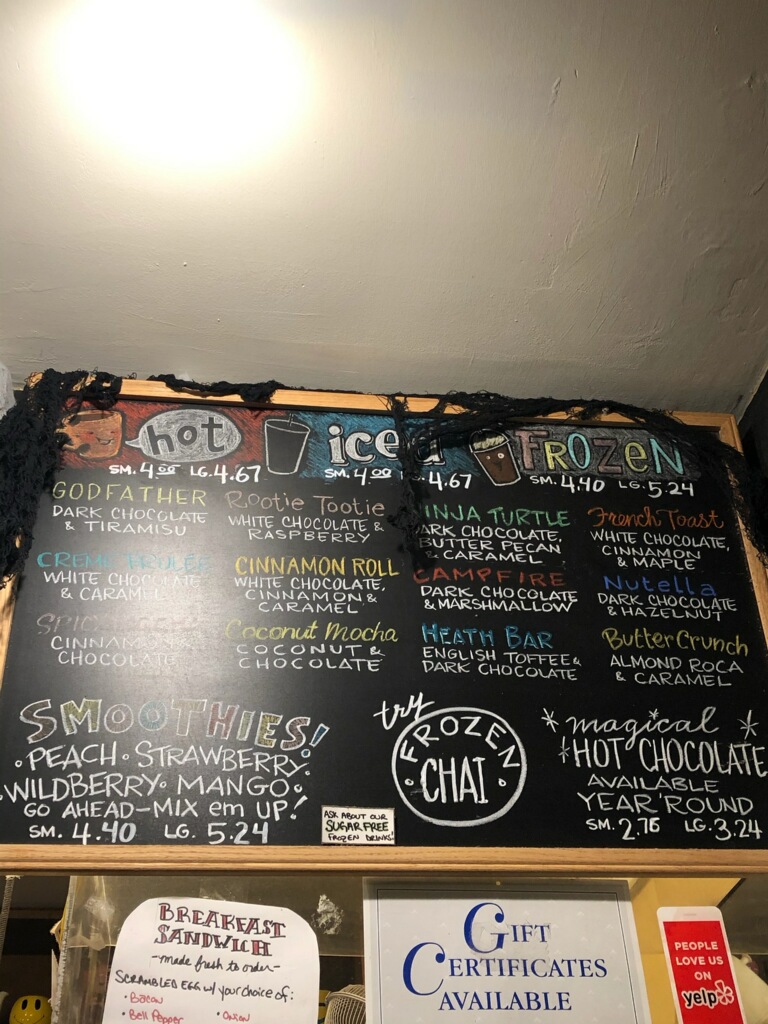 hot
SM. 4.00 LG. 4.67
iced
SM. 4.00 4.67
FROZEN
SM. 4.40 LG. 5.24
GODFATHER
DARK CHOCOLATE
& TIRAMISU
CREME BRULEE
WHITE CHOCOLATE
& CARAMEL
CINNAMON
CHOCOLATE
Rootie Tootie
WHITE CHOCOLATE &
RASPBERRY
CINNAMON ROLL
WHITE CHOCOLATE,
CINNAMON &
CARAMEL
Coconut Mocha
COCONUT &
CHOCOLATE
NINJA TURTLE
DARK CHOCOLATE,
BUTTER PECAN
& CARAMEL
CAMPFIRE
DARK CHOCOLATE
& MARSHMALLOW
HEATH BAR
ENGLISH TOFFEE &
DARK CHOCOLATE
French Toast
WHITE CHOCOLATE,
CINNAMON
& MAPLE
Nutella
DARK CHOCOLATE
& HAZELNUT
Butter Crunch
ALMOND ROCA
& CARAMEL
SMOOTHIES!
• PEACH • STRAWBERRY •
• WILDBERRY • MANGO •
GO AHEAD-MIX em UP!
SM. 4.40 LG. 5.24
try
FROZEN
CHAI
ASK ABOUT OUR
SUGAR FREE
FROZEN DRINKS!
magical
HOT CHOCOLATE
AVAILABLE
YEAR 'ROUND
SM. 2.76 LG. 3.24
BREAKFAST
SANDWICH
-made fresh to order-
SCRAMBLED EGG w/ your choice of:
• Bacon
• Bell Pepper • Onion
GIFT
CERTIFICATES
AVAILABLE
PEOPLE
LOVE US
ON
yelp